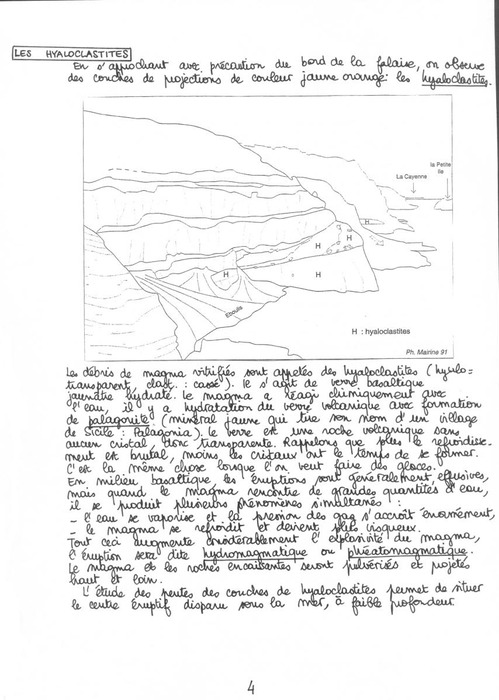 LES HYALOCLASTITES
En s'approchant avec précaution du bord de la falaise, on observe
des couches de projections de couleur jaune orangé : les hyaloclastites.
la Petite
île
La Cayenne
H
H
H
H
H
Eboulis
H : hyaloclastites
Ph. Mairine 91
Les débris de magma vitrifiés sont appelés des hyaloclastites (hyalo =
transparent, clast. : cassé). Il s'agit de verre basaltique
jaunâtre hydraté. Le magma a réagi chimiquement avec
l'eau, il y a hydratation du verre volcanique avec formation
de palagonite (minéral jaune qui tire son nom d'un village
de Sicile : Palagonia). Le verre est une roche volcanique sans
aucun cristal, donc transparente. Rappelons que plus le refroidisse-
ment est brutal, moins les cristaux ont le temps de se former.
C'est la même chose lorsque l'on veut faire des glaces.
En milieu basaltique les éruptions sont généralement effusives,
mais quand le magma rencontre de grandes quantités d'eau,
il se produit plusieurs phénomènes simultanés :
- l'eau se vaporise et la pression des gaz s'accroît énormément,
- le magma se refroidit et devient plus visqueux.
Tout ceci augmente considérablement l'explosivité du magma,
l'éruption sera dite hydromagmatique ou phréatomagmatique.
Le magma et les roches encaissantes seront pulvérisés et projetés
haut et loin.
L'étude des pentes des couches de hyaloclastites permet de situer
le centre éruptif disparu sous la mer, à faible profondeur.
4